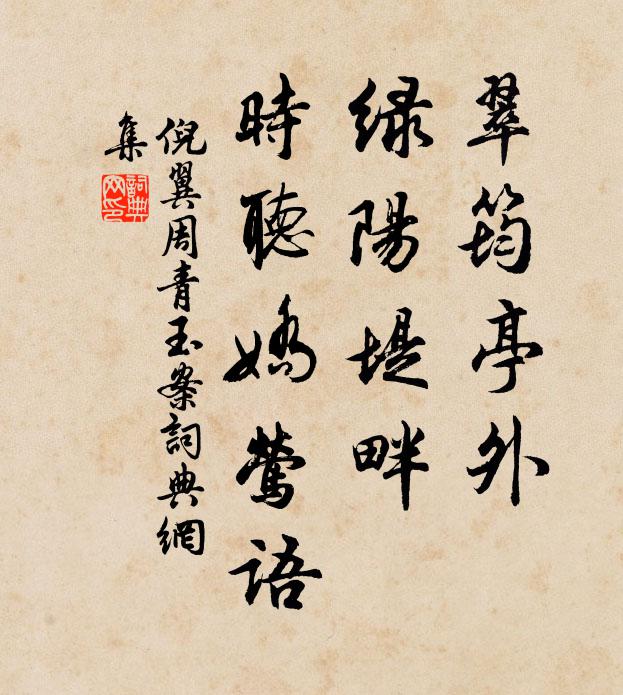 翠筠亭外
綠陽堤畔
時聽嬌鶯語
倪翼周青玉案詞典網
集
詞典
网印